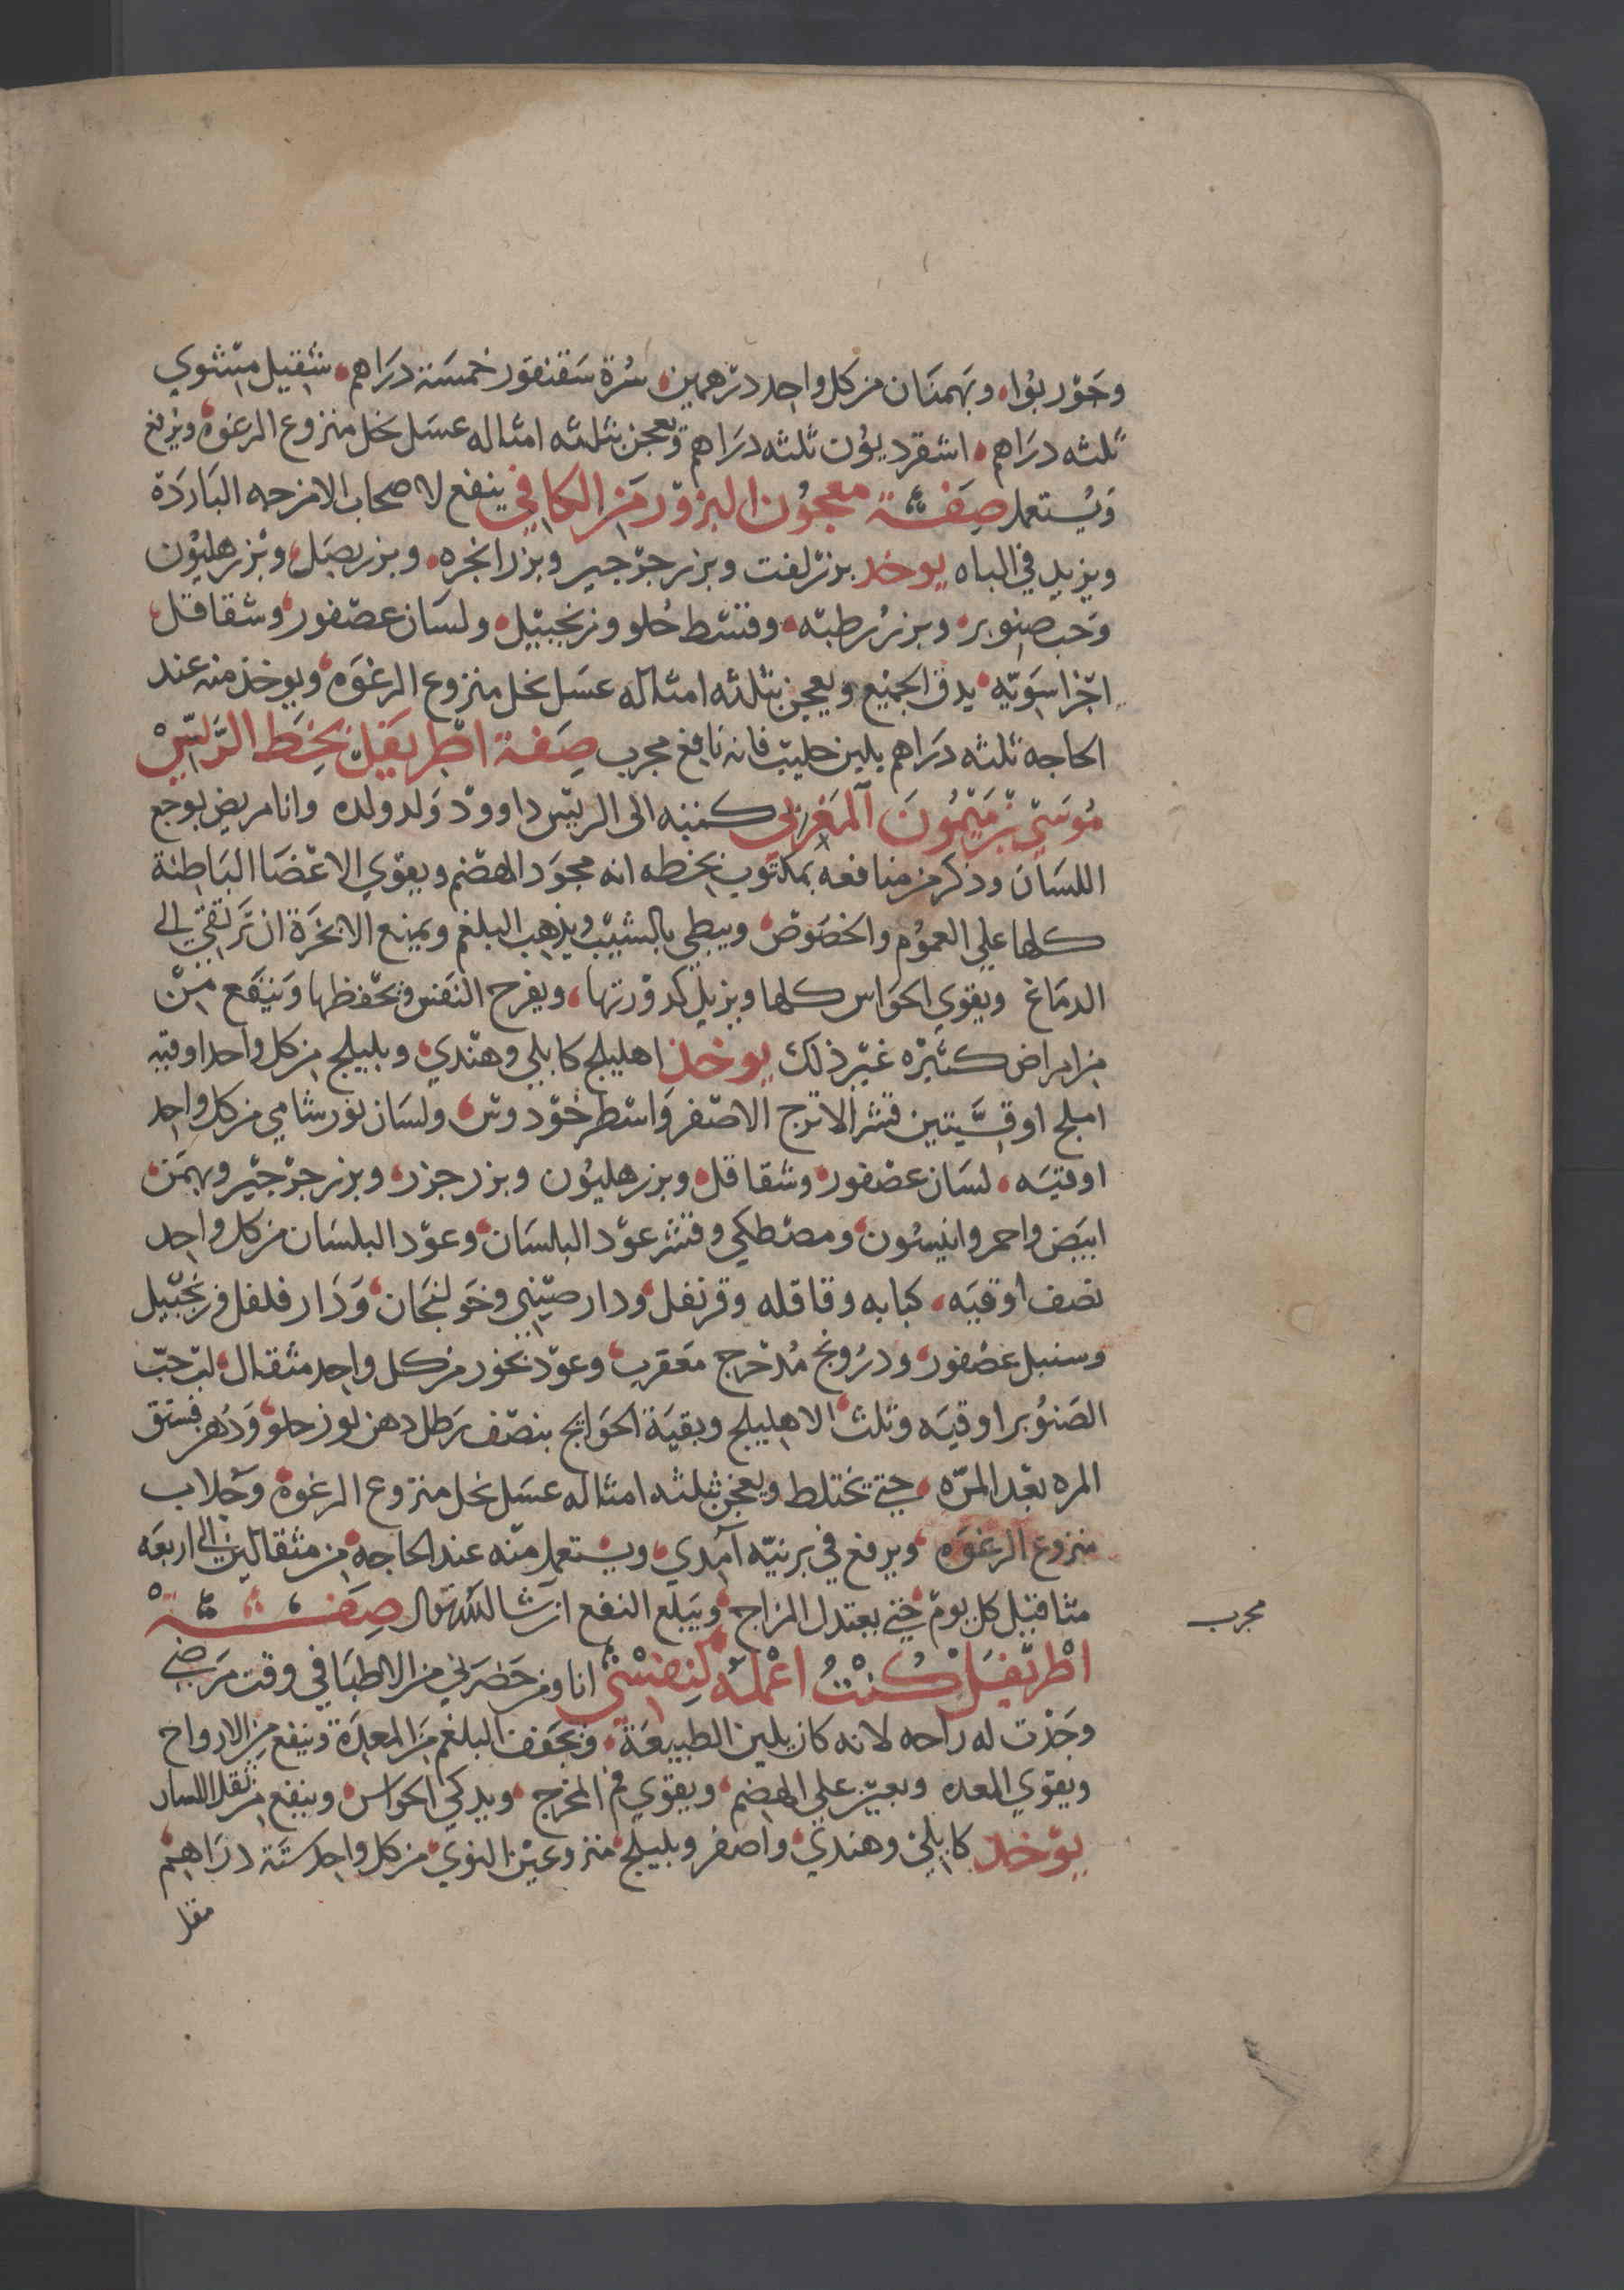 وجوز بوا، وبهمنان من كل واحد درهمين، سرة سقنقور خمسة دراهم، شقيل مشوي
ثلثه دراهم، اشقرديون ثلثه دراهم ويعجن بثلثه امثاله عسل نحل منزوع الرغوة ويرفع
ويستعمل صفة معجون البزور من الكافي ينفع لاصحاب الامزجه الباردة
ويزيد في الباه يوخد بزر لفت وبزر جرجير وبزر انجره، وبزر بصل، وبزر هليون
وحب صنوبر، وبزر رطبه، وقسط حلو وزنجبيل، ولسان عصفور، وشقاقل،
اجزا سويه، يدق الجميع ويعجن بثلثه امثاله عسل نحل منزوع الرغوه، ويوخذ منه عند
الحاجه ثلثه دراهم بلبن حليب فانه نافع مجرب صفة اطريفل بخط الريس
موسي بن ميمون المغربي كتبه الى الريس داوود ولد ولده وانا مريض بوجع
اللسان وذكر من منافعه بمكتوب بخطه انه مجود الهضم ويقوي الاعضا الباطنة
كلها علي العموم والخصوص، ويبطي بالشيب ويذهب البلغم ويمنع الابخرة ان ترتقي الي
الدماغ ويقوي الحواس كلها ويزيل كدورتها، ويفرح النفس ويحفظها وينفع من
من امراض كثيره غير ذلك يوخذ اهليلج كابلي وهندي، وبليلج من كل واحد اوقيه
املج اوقيتين قشر الاترج الاصفر واسطوخودوس، ولسان ثور شامي من كل واحد
اوقيه، لسان عصفور، وشقاقل، وبزر هليون وبزر جزر، وبزر جرجير وبهمن
ابيض واحمر وانيسون، ومصطكي وقشر عود البلسان، وعود البلسان من كل واحد
نصف اوقيه، كبابه وقاقله وقرنفل، ودار صيني وخولنجان، ودار فلفل وزنجبيل
وسنبل عصفور، ودرونج مدحرج معقرب، وعود بخور من كل واحد مثقال، لب حب
الصنوبر اوقيه وثلث، الاهليلج وبقية الحوايج بنصف رطل دهن لوز حلو، ودهن فستق
المره بعد المره، حتي يختلط ويعجن بثلثه امثاله عسل نحل منزوع الرغوة، وجلاب
منزوع الرغوه، ويرفع في برنيه آمدي، ويستعمل منه عند الحاجه، من مثقالين الي اربعه
مثاقيل كل يوم حتي يعتدل المزاج، ويبلغ النفع ان شا الله تعالى صفة
مجرب
اطريفل كنت اعمله لنفسي انا ومن حضرني من الاطبا في وقت مرضي
وجدت له راحه لانه كان يلين الطبيعة، ويجفف البلغم من المعدة وينفع من الارواح
ويقوي المعده ويعين علي الهضم، ويقوي فم المخرج، ويدكي الحواس، وينفع من ثقل اللسان
يوخد كابلي وهندي، واصفر وبليلج، منزوعين النوي، من كل واحد ستة دراهم
مقل